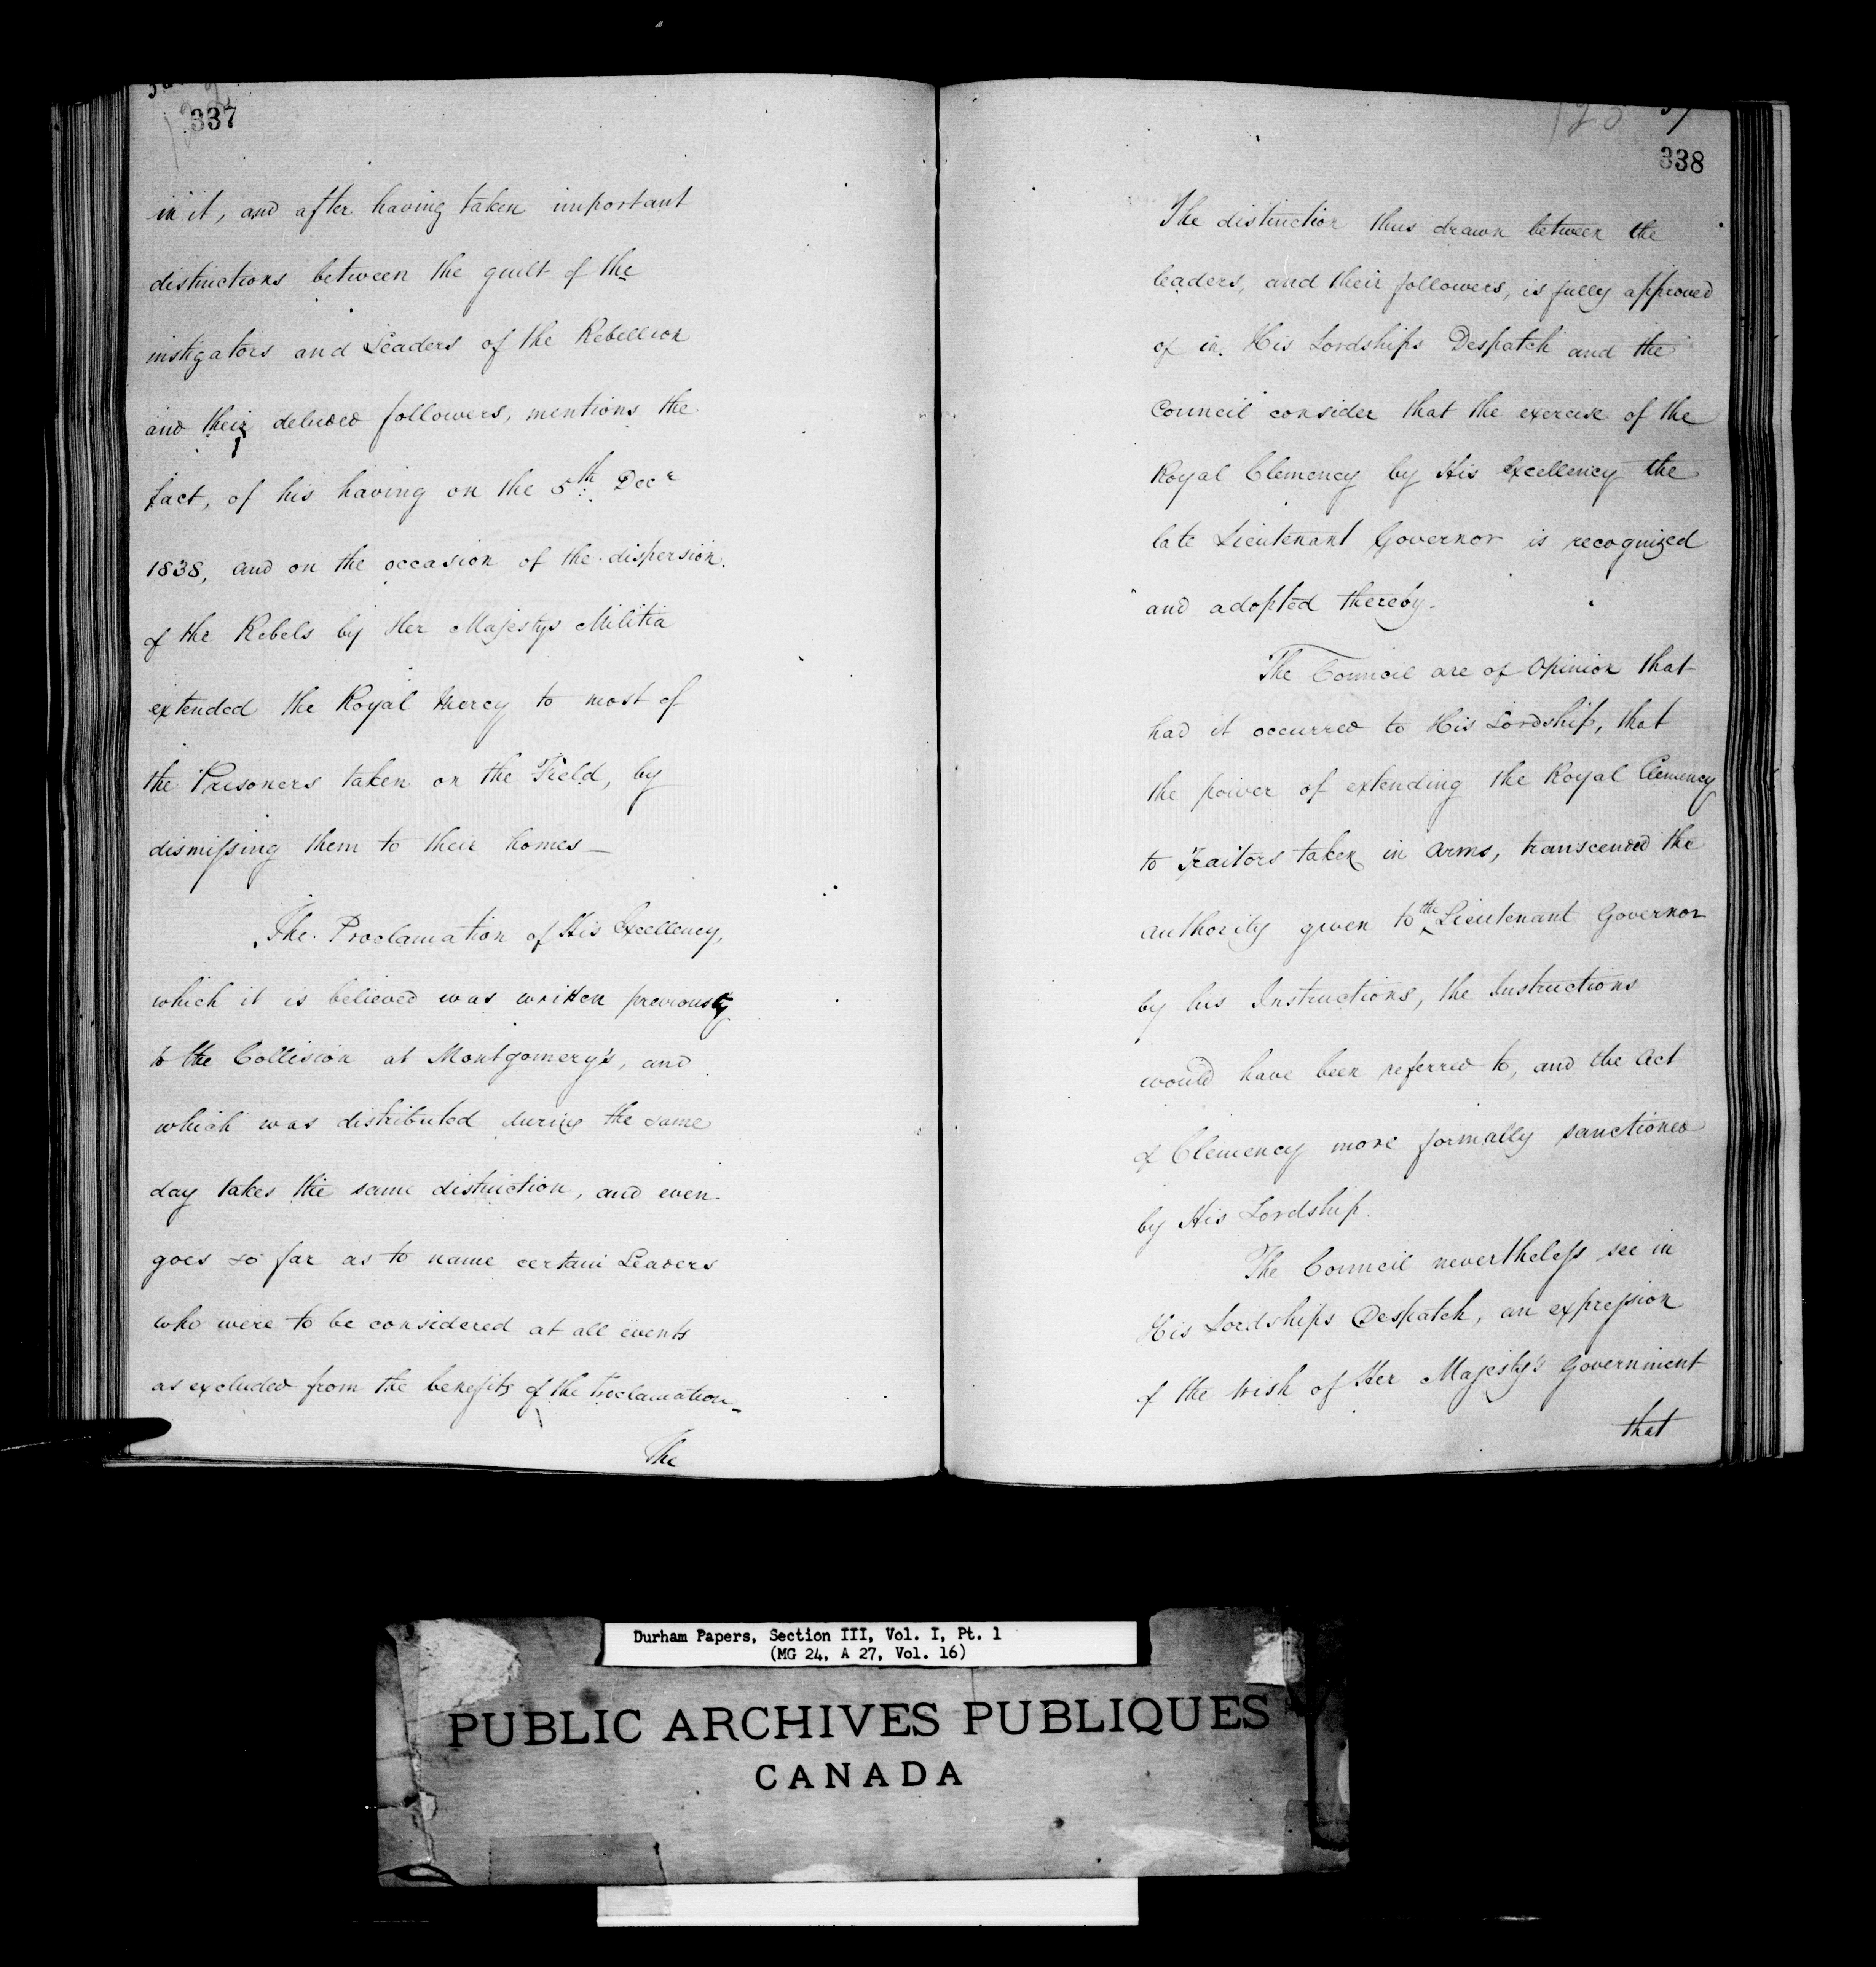 337
in it, and after having taken important
distinctions between the guilt of the
instigators and Leaders of the Rebellion
and their deluded followers, mentions the
fact, of his having on the 5th Decr
1838, and on the occasion of the dispersion
of the Rebels by Her Majestys Militia
extended the Royal Mercy to most of
the Prisoners taken on the Field, by
dismissing them to their homes—
The Proclamation of His Excellency,
which it is believed was written previously
to the Collision at Montgomery's, and
which was distributed during the same
day takes the same distinction, and even
goes so far as to name certain Leaders
who were to be considered at all events
as excluded from the benefits of the Proclamation-
The
123
338
The distinction thus drawn between the
leaders, and their followers, is fully approved
of in His Lordships Despatch and the
Council consider that the exercise of the
Royal Clemency by His Excellency the
late Lieutenant Governor is recognized
and adopted thereby.
The Council are of Opinion that
had it occurred to His Lordship, that
the power of extending the Royal Clemency
to Traitors taken in arms, transcended the
authority given to the Lieutenant Governor
by his Instructions, the Instructions
would have been referred to, and the Act
of Clemency more formally sanctioned
by His Lordship.
The Council nevertheless see in
His Lordships Despatch, an expression
of the wish of Her Majesty's Government
that
Durham Papers, Section III, Vol. I, Pt. 1
(MG 24, A 27, Vol. 16)
PUBLIC ARCHIVES PUBLIQUES
CANADA